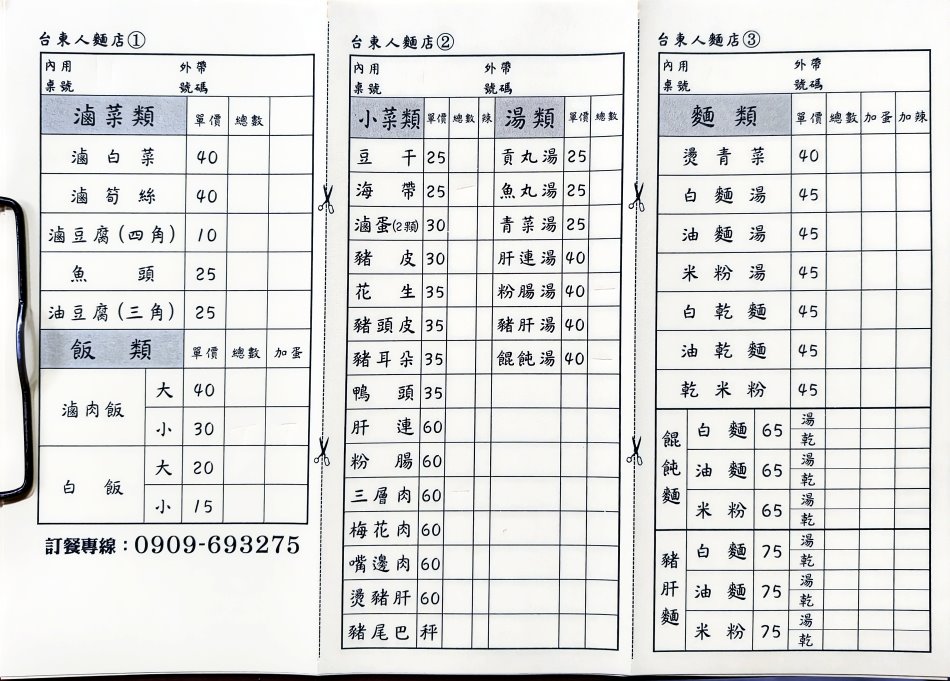 台東人麵店①
內用 外帶
桌號 號碼
滷菜類 單價 總數
滷白菜 40
滷筍絲 40
滷豆腐(四角) 10
魚頭 25
油豆腐(三角) 25
飯類 單價 總數 加蛋
滷肉飯 大 40
小 30
白飯 大 20
小 15
訂餐專線：0909-693275
台東人麵店②
內用 外帶
桌號 號碼
小菜類 單價 總數 辣 湯類 單價 總數
豆干 25 貢丸湯 25
海帶 25 魚丸湯 25
滷蛋(2顆) 30 青菜湯 25
豬皮 30 肝連湯 40
花生 35 粉腸湯 40
豬頭皮 35 豬肝湯 40
豬耳朵 35 餛飩湯 40
鴨頭 35
肝連 60
粉腸 60
三層肉 60
梅花肉 60
嘴邊肉 60
燙豬肝 60
豬尾巴 秤
台東人麵店③
內用 外帶
桌號 號碼
麵類 單價 總數 加蛋 加辣
燙青菜 40
白麵湯 45
油麵湯 45
米粉湯 45
白乾麵 45
油乾麵 45
乾米粉 45
餛飩麵 白麵 65 湯
乾
油麵 65 湯
乾
米粉 65 湯
乾
豬肝麵 白麵 75 湯
乾
油麵 75 湯
乾
米粉 75 湯
乾